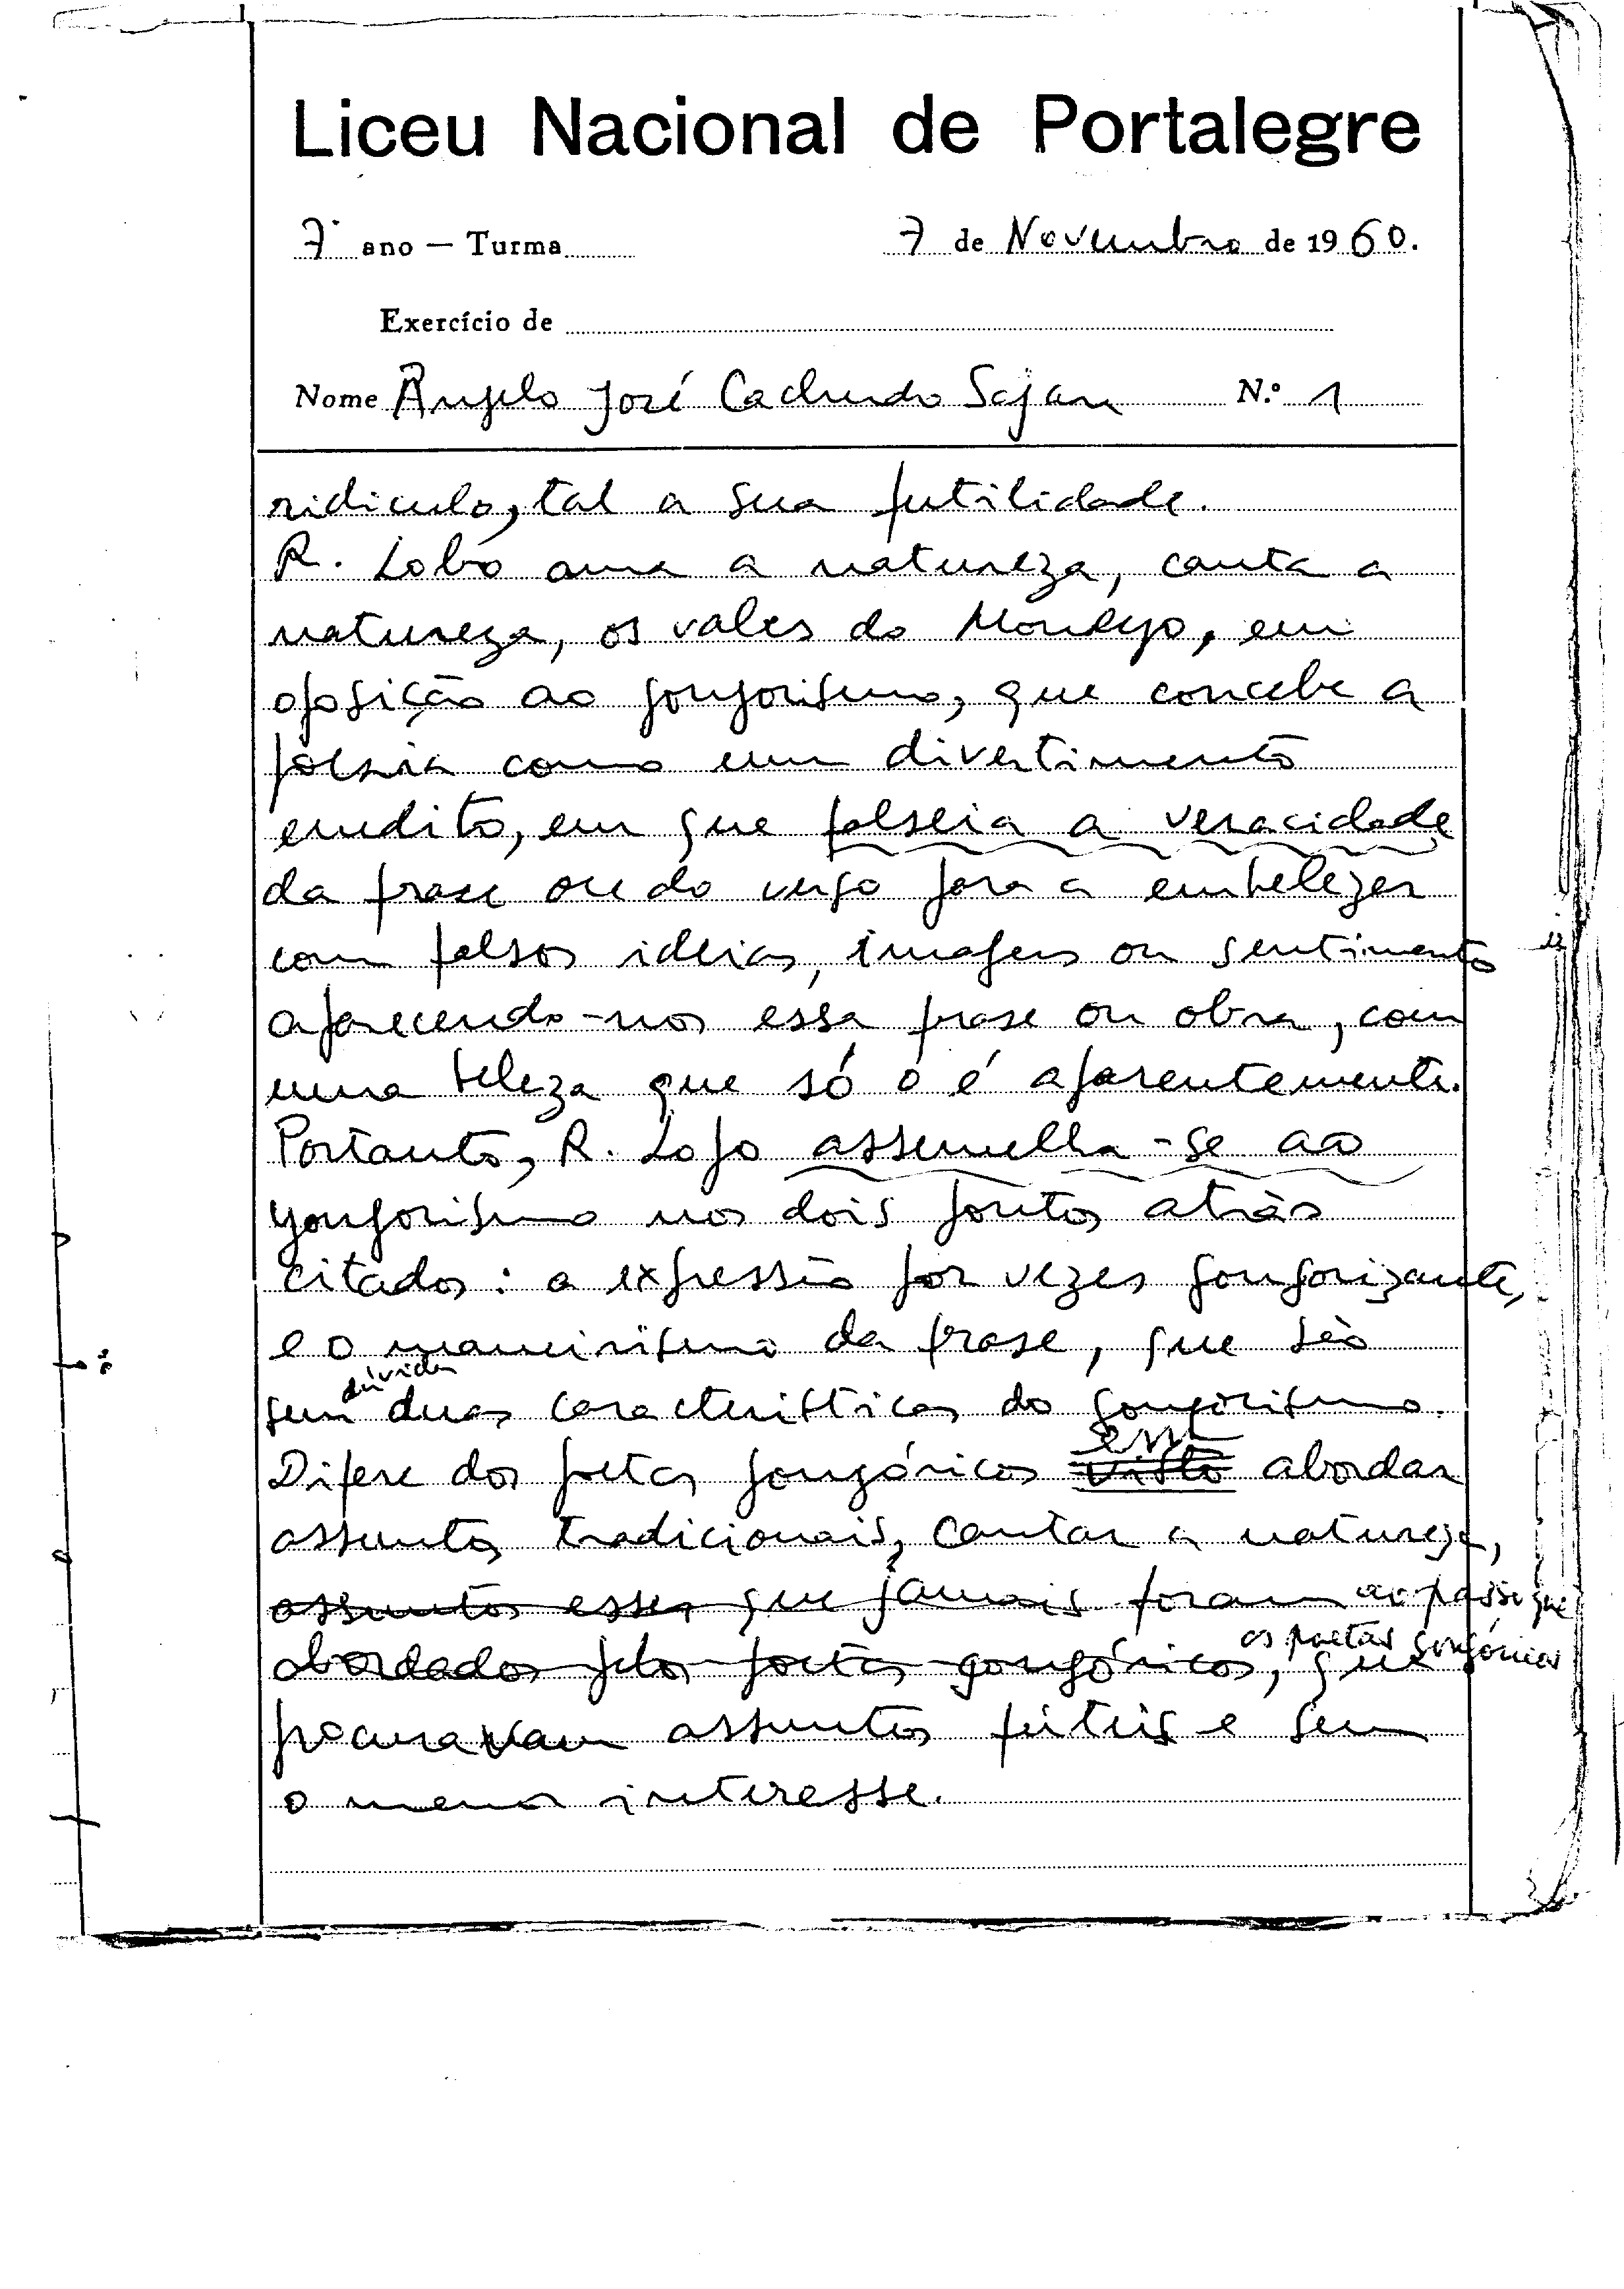 Liceu Nacional de Portalegre
7º ano — Turma 7 de Novembro de 1960.
Exercício de
Nome Ângelo José Cachudo Sajara N.º 1
ridiculo, tal a sua futilidade.
R. Lobo ama a natureza, canta a
natureza, os vales do Mondego, em
oposição ao gongorismo, que concebe a
poesia como um divertimento
erudito, em que falseia a veracidade
da frase ou do verso para a embelezar
com falsos ideias, imagens ou sentimento
aparecendo-nos essa frase ou obra, com
uma beleza que só o é aparentemente.
Portanto, R. Lobo assemelha-se ao
gongorismo nos dois pontos atrás
citados: a expressão por vezes gongorizante,
e o maneirismo da frase, que são
sem dúvida duas características do gongorismo.
Difere dos poetas gongóricos visto em abordar
assuntos tradicionais, cantar a natureza,
assuntos esses que jamais foram ao passo que
abordados pelos poetas gongóricos, que os poetas gongóricos
procuravam assuntos fúteis e sem
o menor interesse.